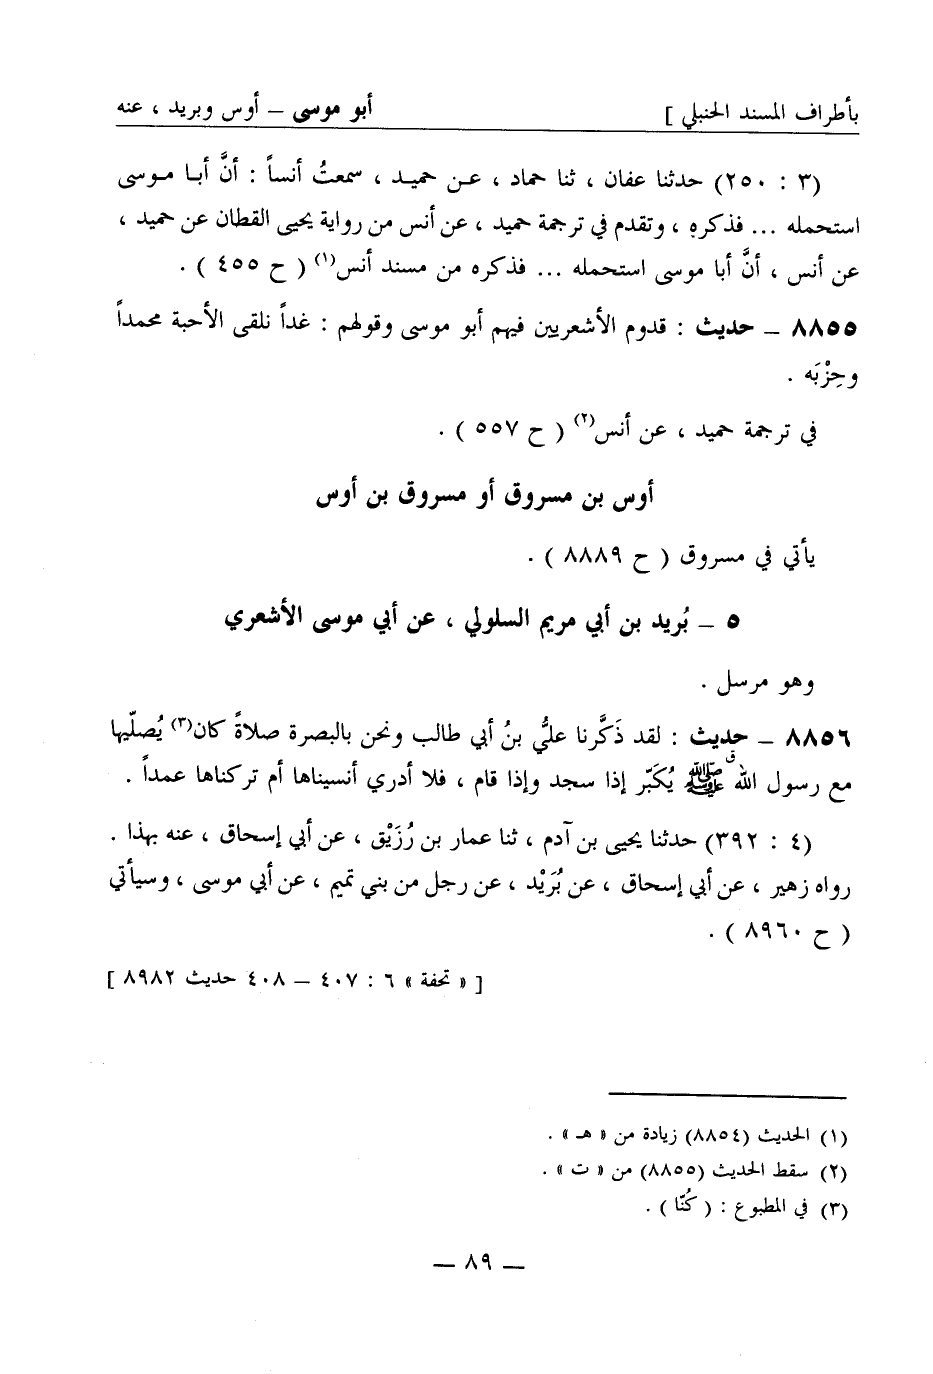 بأطراف المسند الحنبلي ] أبو موسى – أوس وبريد ، عنه
(٣ : ٢٥٠) حدثنا عفان ، ثنا حماد ، عن حميد ، سمعتُ أنساً : أنَّ أبا موسى
استحمله ... فذكره ، وتقدم في ترجمة حميد ، عن أنس من رواية يحيى القطان عن حميد ،
عن أنس ، أنَّ أبا موسى استحمله ... فذكره من مسند أنس(١) ( ح ٤٥٥ ) .
٨٨٥٥ – حديث : قدوم الأشعريين فيهم أبو موسى وقولهم : غداً نلقى الأحبة محمداً
وحِزْبَه .
في ترجمة حميد ، عن أنس(٢) ( ح ٥٥٧ ) .
أوس بن مسروق أو مسروق بن أوس
يأتي في مسروق ( ح ٨٨٨٩ ) .
٥ – بُريد بن أبي مريم السلولي ، عن أبي موسى الأشعري
وهو مرسل .
٨٨٥٦ – حديث : لقد ذَكَّرنا عليُّ بنُ أبي طالب ونحن بالبصرة صلاةً كان(٣) يُصلّيها
مع رسول الله ﷺ يُكَبّر إذا سجد وإذا قام ، فلا أدري أنسيناها أم تركناها عمداً .
(٤ : ٣٩٢) حدثنا يحيى بن آدم ، ثنا عمار بن رُزَيْق ، عن أبي إسحاق ، عنه بهذا .
رواه زهير ، عن أبي إسحاق ، عن بُرَيْد ، عن رجل من بني تميم ، عن أبي موسى ، وسيأتي
( ح ٨٩٦٠ ) .
[ « تحفة » ٦ : ٤٠٧ – ٤٠٨ حديث ٨٩٨٢ ]
(١) الحديث (٨٨٥٤) زيادة من « هـ » .
(٢) سقط الحديث (٨٨٥٥) من « ت » .
(٣) في المطبوع : ( كُنّا ) .
– ٨٩ –